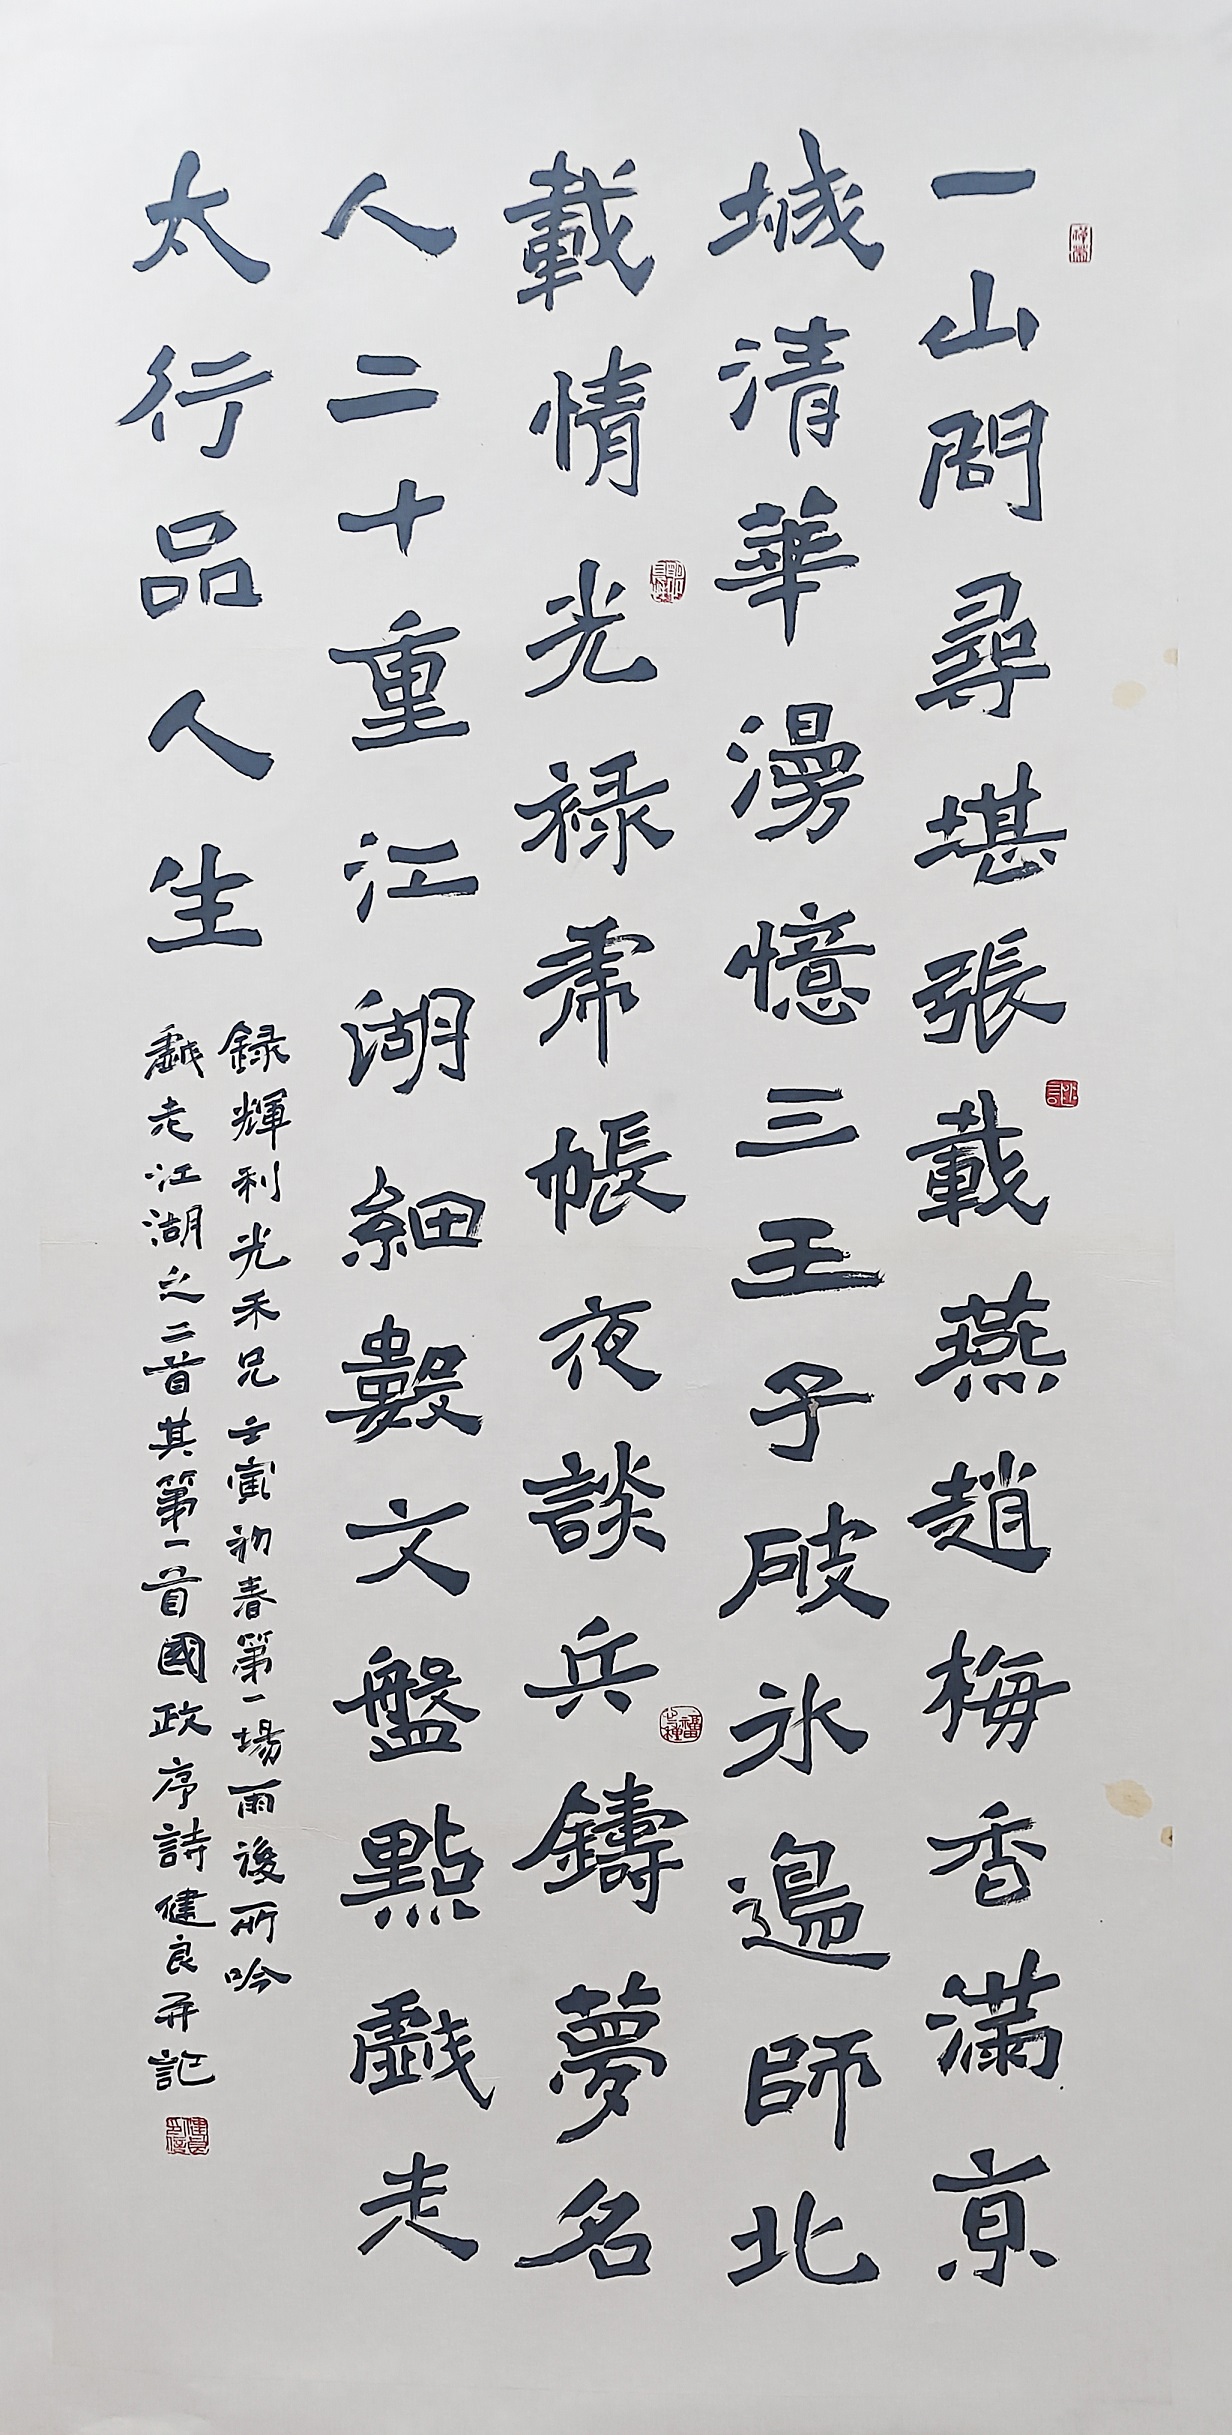 一山問尋堪張載燕趙梅香滿京
城清華漫憶三王子破冰邊師北
載情光祿帶帳夜談兵鑄夢名
人二十重江湖細數文盤點戲走
太行品人生
録輝利光禾兄壬寅初春第一場雨後所吟
戲走江湖之二首其第一首國政序詩健良并記